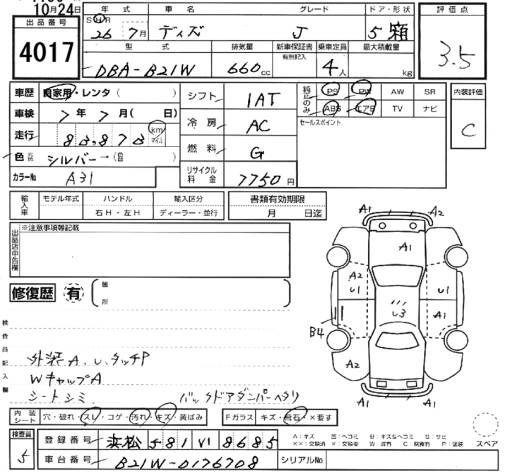 10月24日
年式 車名 グレード ドア・形状 評価点
出品番号 4017
26年 7月 ディズ J 5 箱 3.5
型式 排気量 新車保証書 有無記入 乗車定員 最大積載量
DBA-B21W 660cc 4人 kg
車歴 自家用・レンタ( )
シフト 1AT
純正のみ PS PW AW SR
ABS エアB TV ナビ
内装評価 C
車検 7年7月( 日)
冷房 AC
セールスポイント
走行 83,873 km マイル
燃料 G
色 シルバー→( )
カラーNo A31
リサイクル料金 7750円
輸入車 モデル年式 ハンドル 右H・左H 輸入区分 ディーラー・並行
書類有効期限 月 日迄
出品店申告欄 ※注意事項等記載
修復歴 有 箇所
A1 A2
A1
A2 U1 U1 A1
U3
B4 A1 A1
A1 A2
検査員記入欄
外装A、U、タッチP
WキャップA
シートシミ バックドアダンパーヘタリ
内装シート 穴・破れ・スレ・コゲ・汚れ・キズ・黄ばみ
Fガラス キズ・飛石・×要す
検査員 5
登録番号 浜松 581 VI 8685
A:キズ U:ヘコミ B:キズ&ヘコミ S:サビ
スペア
車台番号 B21W-0176708
シリアルNo